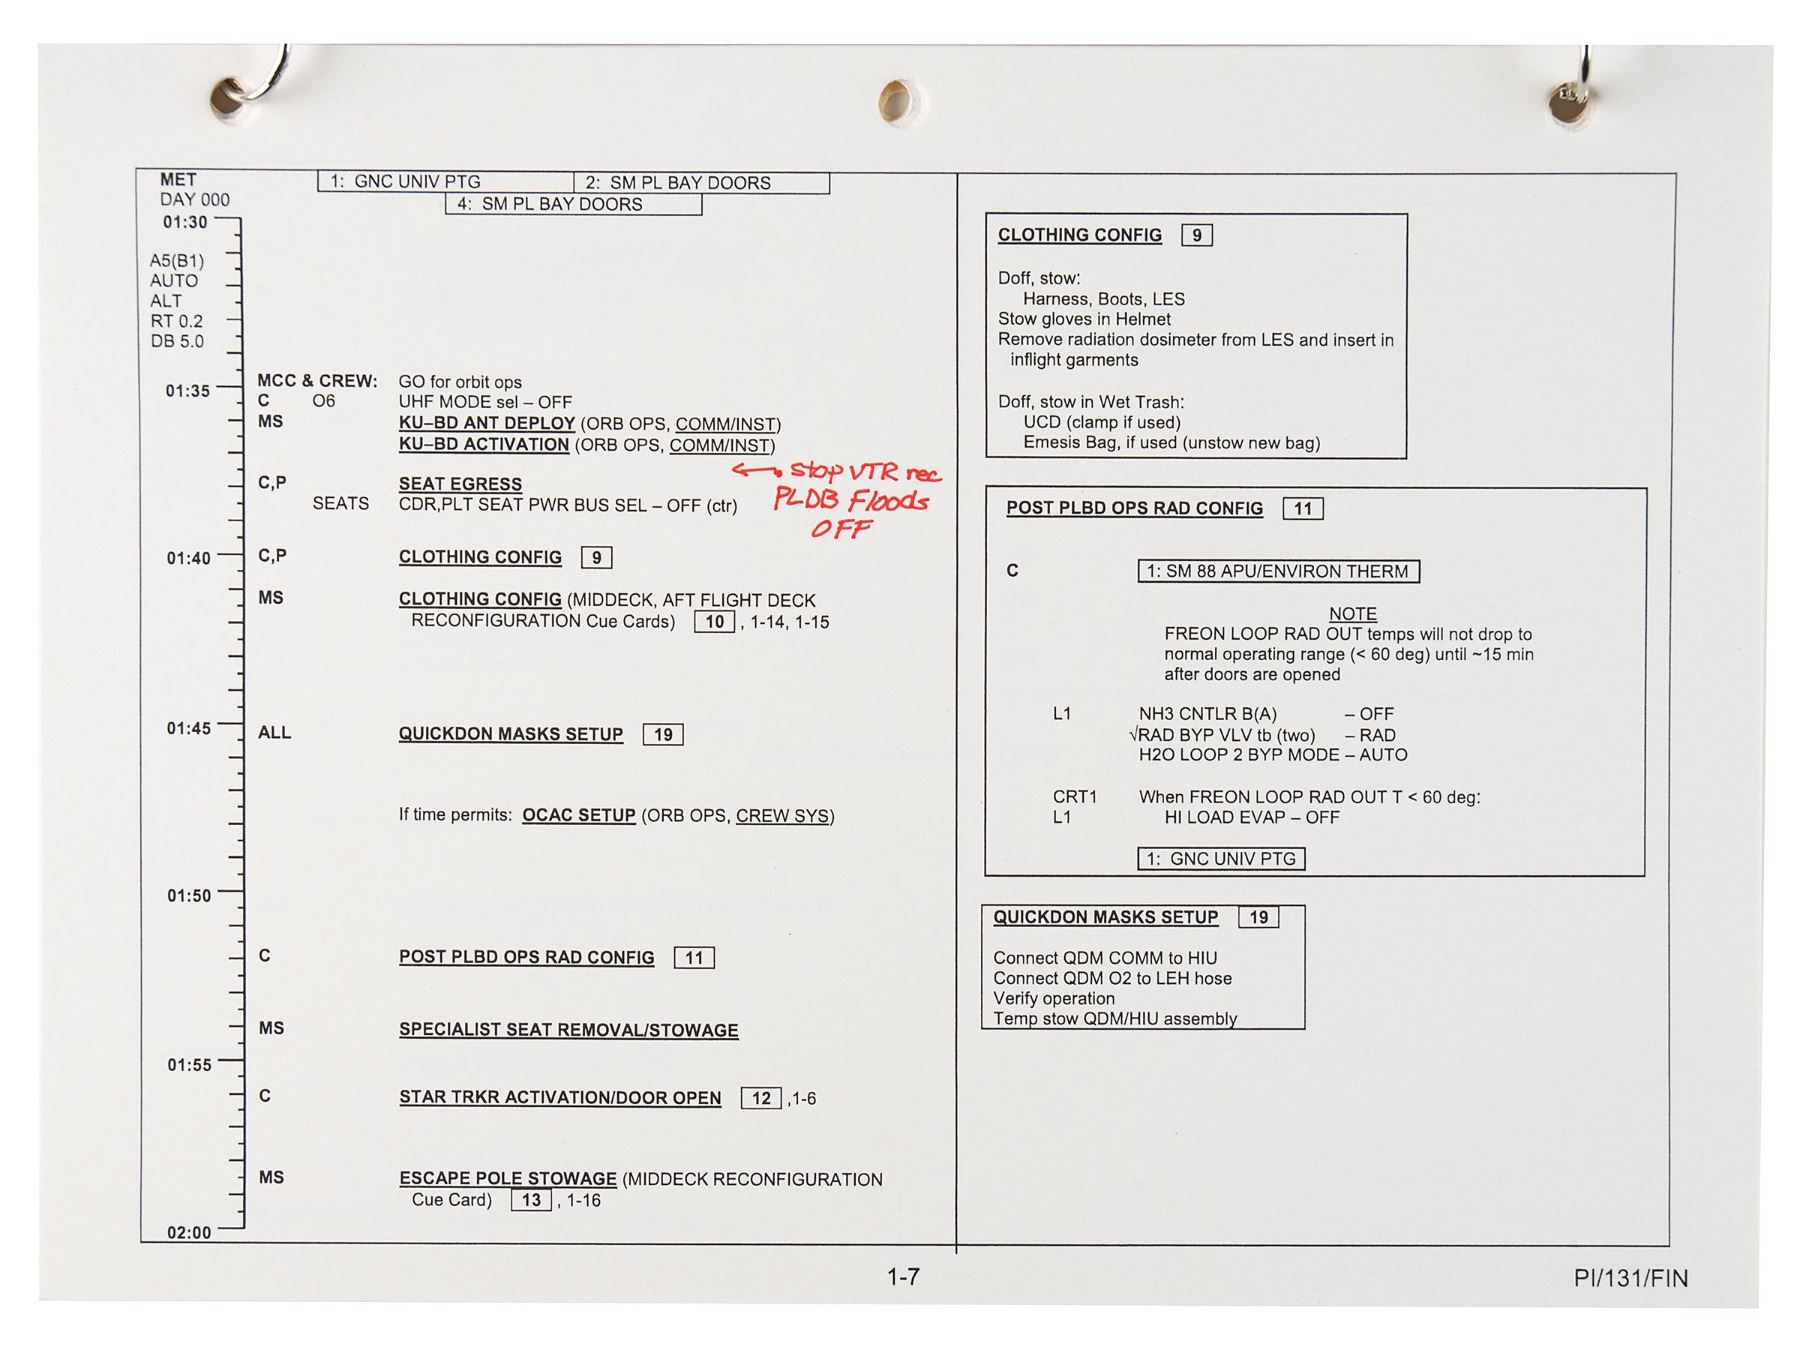 MET
DAY 000
1: GNC UNIV PTG 2: SM PL BAY DOORS
4: SM PL BAY DOORS
01:30
A5(B1)
AUTO
ALT
RT 0.2
DB 5.0
MCC & CREW: GO for orbit ops
01:35
C O6 UHF MODE sel – OFF
MS KU–BD ANT DEPLOY (ORB OPS, COMM/INST)
KU–BD ACTIVATION (ORB OPS, COMM/INST)
← stop VTR rec
PLDB Floods
OFF
C,P SEAT EGRESS
SEATS CDR,PLT SEAT PWR BUS SEL – OFF (ctr)
01:40 C,P CLOTHING CONFIG 9
MS CLOTHING CONFIG (MIDDECK, AFT FLIGHT DECK
RECONFIGURATION Cue Cards) 10 , 1-14, 1-15
01:45 ALL QUICKDON MASKS SETUP 19
If time permits: OCAC SETUP (ORB OPS, CREW SYS)
01:50
C POST PLBD OPS RAD CONFIG 11
MS SPECIALIST SEAT REMOVAL/STOWAGE
01:55
C STAR TRKR ACTIVATION/DOOR OPEN 12 ,1-6
MS ESCAPE POLE STOWAGE (MIDDECK RECONFIGURATION
Cue Card) 13 , 1-16
02:00
CLOTHING CONFIG 9
Doff, stow:
Harness, Boots, LES
Stow gloves in Helmet
Remove radiation dosimeter from LES and insert in
inflight garments
Doff, stow in Wet Trash:
UCD (clamp if used)
Emesis Bag, if used (unstow new bag)
POST PLBD OPS RAD CONFIG 11
C 1: SM 88 APU/ENVIRON THERM
NOTE
FREON LOOP RAD OUT temps will not drop to
normal operating range (< 60 deg) until ~15 min
after doors are opened
L1 NH3 CNTLR B(A) – OFF
√RAD BYP VLV tb (two) – RAD
H2O LOOP 2 BYP MODE – AUTO
CRT1 When FREON LOOP RAD OUT T < 60 deg:
L1 HI LOAD EVAP – OFF
1: GNC UNIV PTG
QUICKDON MASKS SETUP 19
Connect QDM COMM to HIU
Connect QDM O2 to LEH hose
Verify operation
Temp stow QDM/HIU assembly
1-7
PI/131/FIN